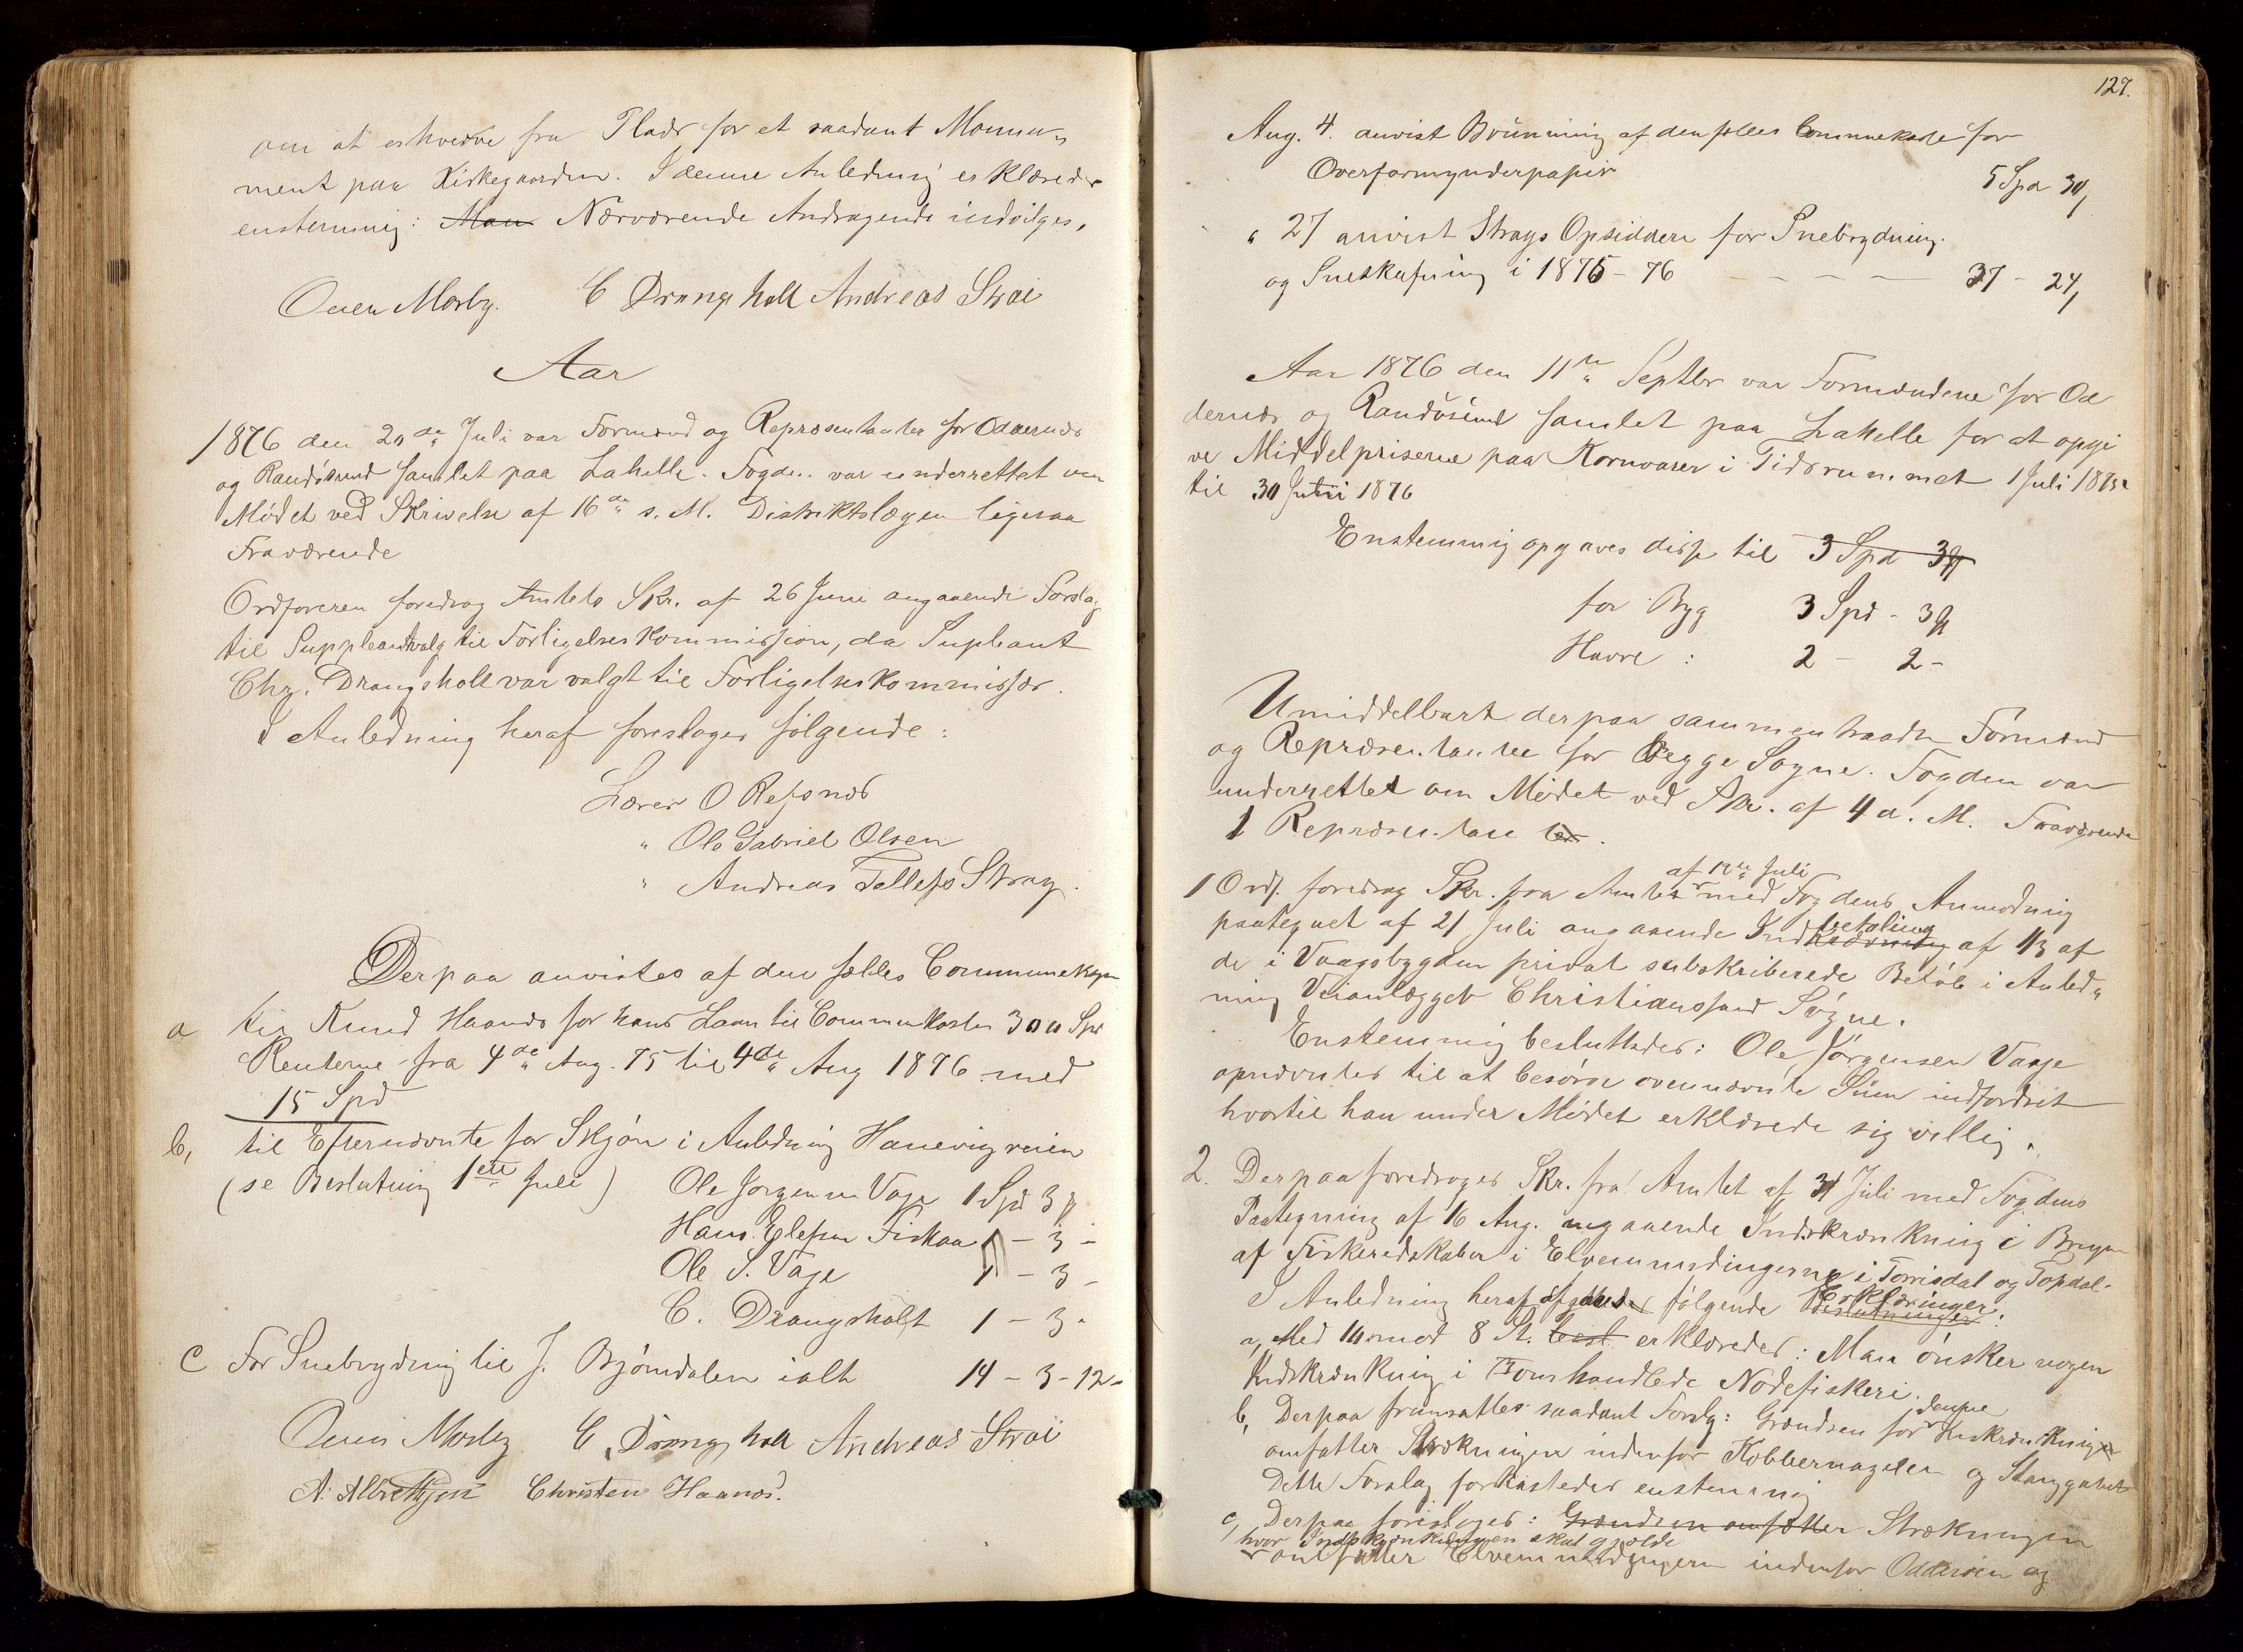 om at erhverve fra Plads for et saadant Monnu-
ment paa Kirkegaarden. I denne Anledning erklæredes
enstemmig: Man Nærværende Andragende indvilges.
Ouen Mosby. C Drangsholt Andreas Strai
Aar
1876 den 20de Juli var Formænd og Repræsentanter for Oddernæs
og Randøsund samlet paa Lahelle. Fogden var underrettet om
Mødet ved Skrivelse af 16de s. M. Distriktslægen ligesaa
Fraværende
Ordføreren foredrog Amtets Skr. af 26 Juni angaaende Forslag
til Suppleantvalg til Forligelseskommission, da Supleant
Chr. Drangsholt var valgt til Forligelseskommissær.
I Anledning heraf foresloges følgende:
Lærer O Refsnæs
" Ole Gabriel Olsen
" Andreas Tellefs Stray.
Derpaa anvistes af den fælles Communekasse
a til Knud Haanæs for hans Laan til Communekassen 300 Spd
Renterne fra 4de Aug. 75 til 4de Aug 1876 med
15 Spd
b, til Efternævnte for Skjøn i Anledning Hanevigveien
(se Beslutning 1ste Juli) Ole Jørgensen Vage 1 Spd 3
Hans Elefsen Fiskaa 1 - 3 -
Ole S. Vage 1 - 3 -
C. Drangsholt 1 - 3 -
c For Snebrydning til J. Bjørndalen ialt 14 - 3 - 12 -
Ouen Mosby C Drangsholt Andreas Strai
A. Albrethsen Christen Haanæs.
127.
Aug. 4. anvist Brünning af den fælles Communekasse for
Overformynderpapir 5 Spd 30
" 27 anvist Strays Opsiddere for Snebrydning
og Sneskufning i 1875-76 - - - - 37 - 24
Aar 1876 den 11te Septbr var Formændene for Od
dernæs og Randøsund samlet paa Lahelle for at opgi
ve Middelpriserne paa Kornvarer i Tidsrummet 1 Juli 1875
til 30 Juni 1876
Enstemmig opgaves disse til 3 Spd 3
for Byg 3 Spd - 3
Havre: 2 - 2 -
Umiddelbart derpaa sammentraadte Formænd
og Repræsentanter for Begge Sogne. Fogden var
underrettet om Mødet ved Skr. af 4 d. M. Fraværende
1 Repræsentant.
1 Ordf. foredrog Skr. fra Amtet af 12te Juli med Fogdens Anmodning
paategnet af 21 Juli angaaende Indbetaling af 1/3 af
de i Vaagsbygden privat subskriberede Beløb i Anled-
ning Veianlægget Christianssand Søgne.
Enstemmig besluttedes: Ole Jørgensen Vaage
opnævntes til at besørge ovennævnte Sum indfordret
hvortil han under Mødet erklærede sig villig.
2. Derpaa foredroges Skr. fra Amtet af 31 Juli med Fogdens
Paategning af 16 Aug. angaaende Indskrænkning i Brugen
af Fiskeredskaber i Elvemundingerne i Torrisdal og Topdal.
I Anledning heraf afgaves følgende Erklæringer:
a, Med 10 mod 8 St. besl erklæredes: Man ønsker nogen
Indskrænkning i Omhandlede Nodefiskeri.
b, Derpaa fremsattes saadant Forslg: Grændsen for denne Inskrænkning
omfatter Strækningen indenfor Kobbernagelen og Stanggabet
Dette Forslag forkastedes enstemmig
c, Derpaa foresloges: Grændsen omfatter Strækningen
hvor Indskrænkningen skal gjælde
omfatter Elvemundingerne indenfor Odderøen og